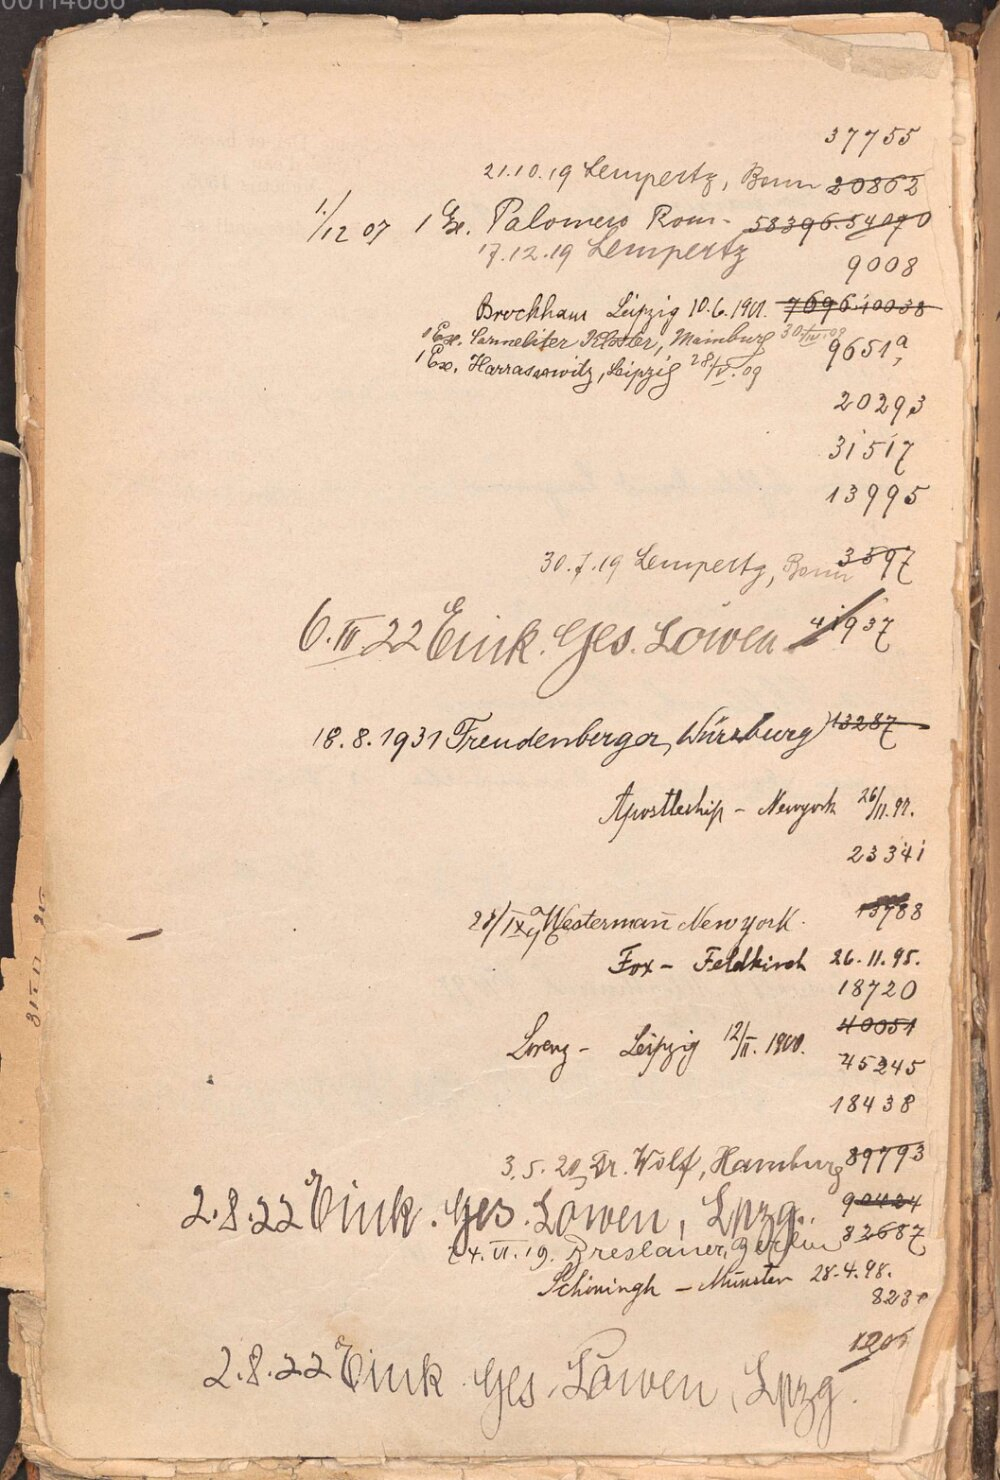 00114686
37755
21.10.19 Lempertz, Bonn 20862
1./12 07 1 Ex. Palomero Rom - 58396. 54070
17.12.19 Lempertz
9008
Brockhaus Leipzig 10.6.1901. 7696. 10038
1 Ex. Carmeliter Kloster, Mainburg 30/IV.08
9651a,
1 Ex. Harrassowitz, Leipzig 28/V.09
20293
31517
13995
30.7.19 Lempertz, Bonn 3597
6.III 22 Eink. Ges. Löwen 41937
18.8.1931 Freudenberger, Würzburg 13287
Apostleship - Newyork 26/11.97.
23341
28/IX Westermañ New york. 13788
Fox - Feldkirch 26.11.95.
18720
40051
Lorenz - Leipzig 12/II. 1900.
45245
18438
3.5.20 Dr. Wolf, Hamburg 89793
90424
2.8.22 Eink. Ges. Löwen, Lpzg.
24.VI.19. Breslauer, Berlin 82687
Schöningh - Münster 28.4.98.
8230
1205
2.8.22 Eink Ges. Löwen, Lpzg.